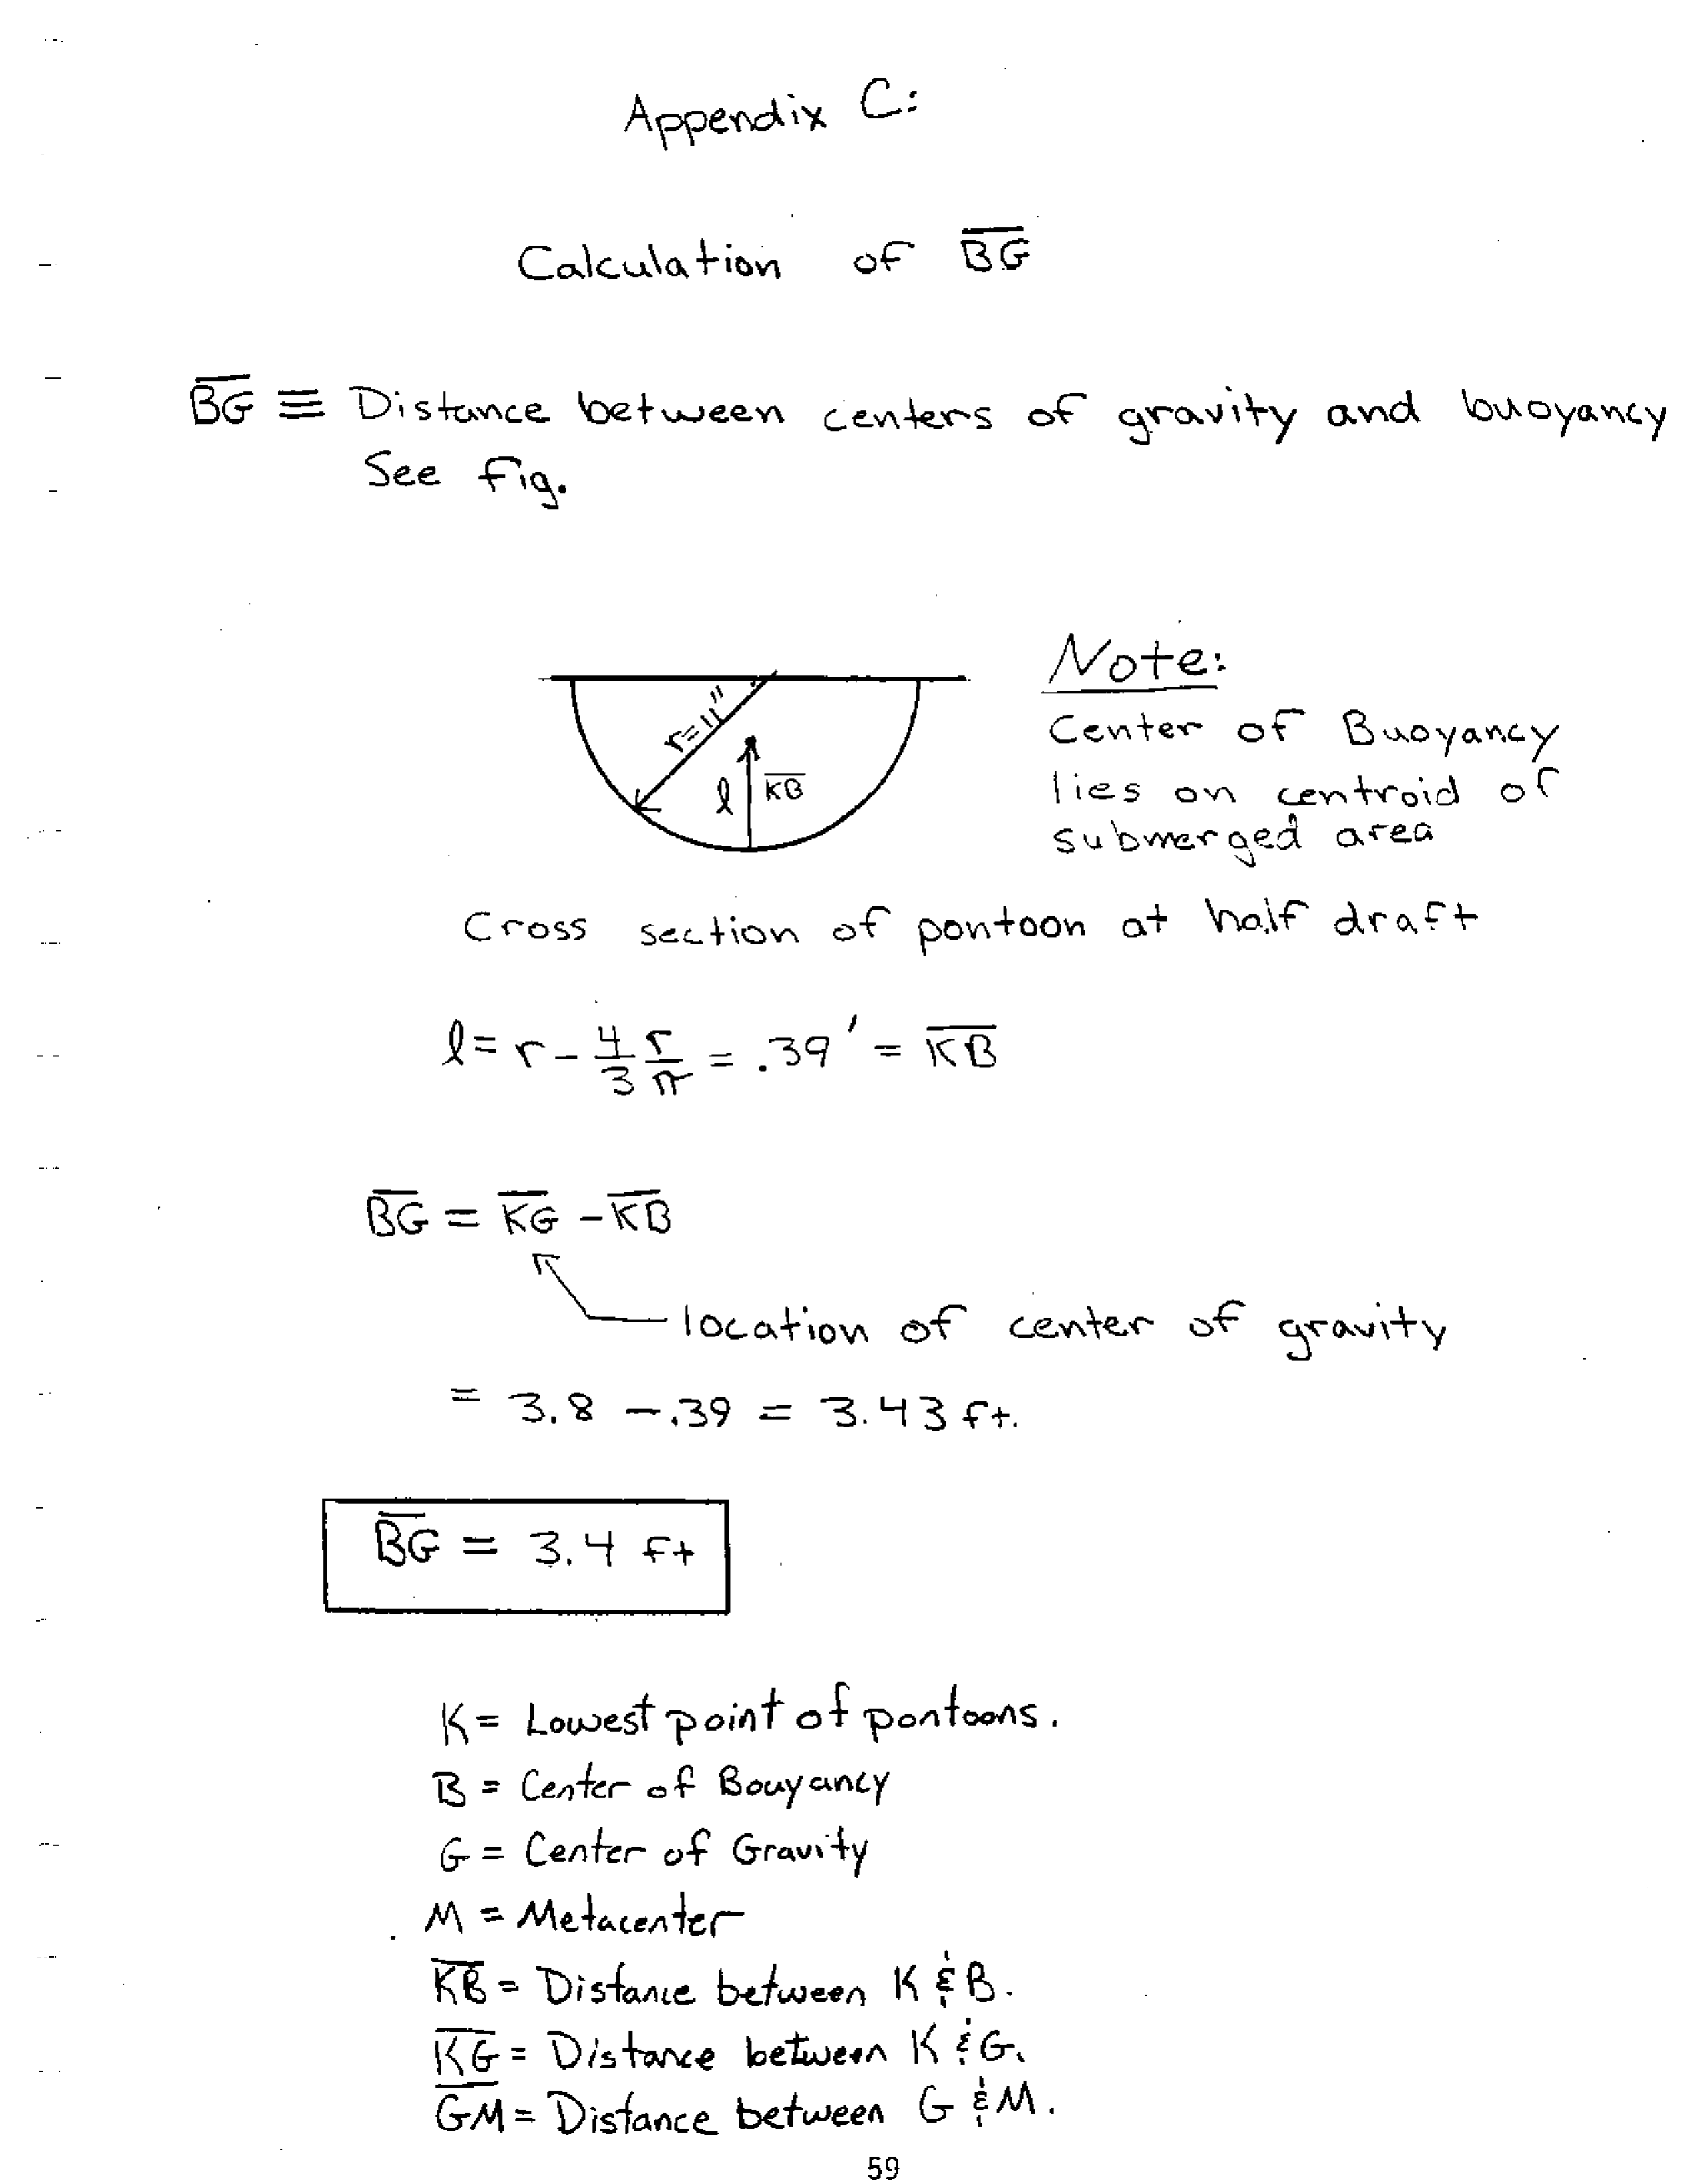 Appendix C:
Calculation of B̅G̅
B̅G̅ ≡ Distance between centers of gravity and buoyancy
See fig.
Note:
r=11"
Center of Buoyancy
l K̅B̅
lies on centroid of
submerged area
Cross section of pontoon at half draft
l = r - 4/3 r/π = .39' = K̅B̅
B̅G̅ = K̅G̅ - K̅B̅
location of center of gravity
= 3.8 - .39 = 3.43 ft.
B̅G̅ = 3.4 ft
K = Lowest point of pontoons.
B = Center of Bouyancy
G = Center of Gravity
M = Metacenter
K̅B̅ = Distance between K & B.
K̅G̅ = Distance between K & G.
G̅M̅ = Distance between G & M.
59